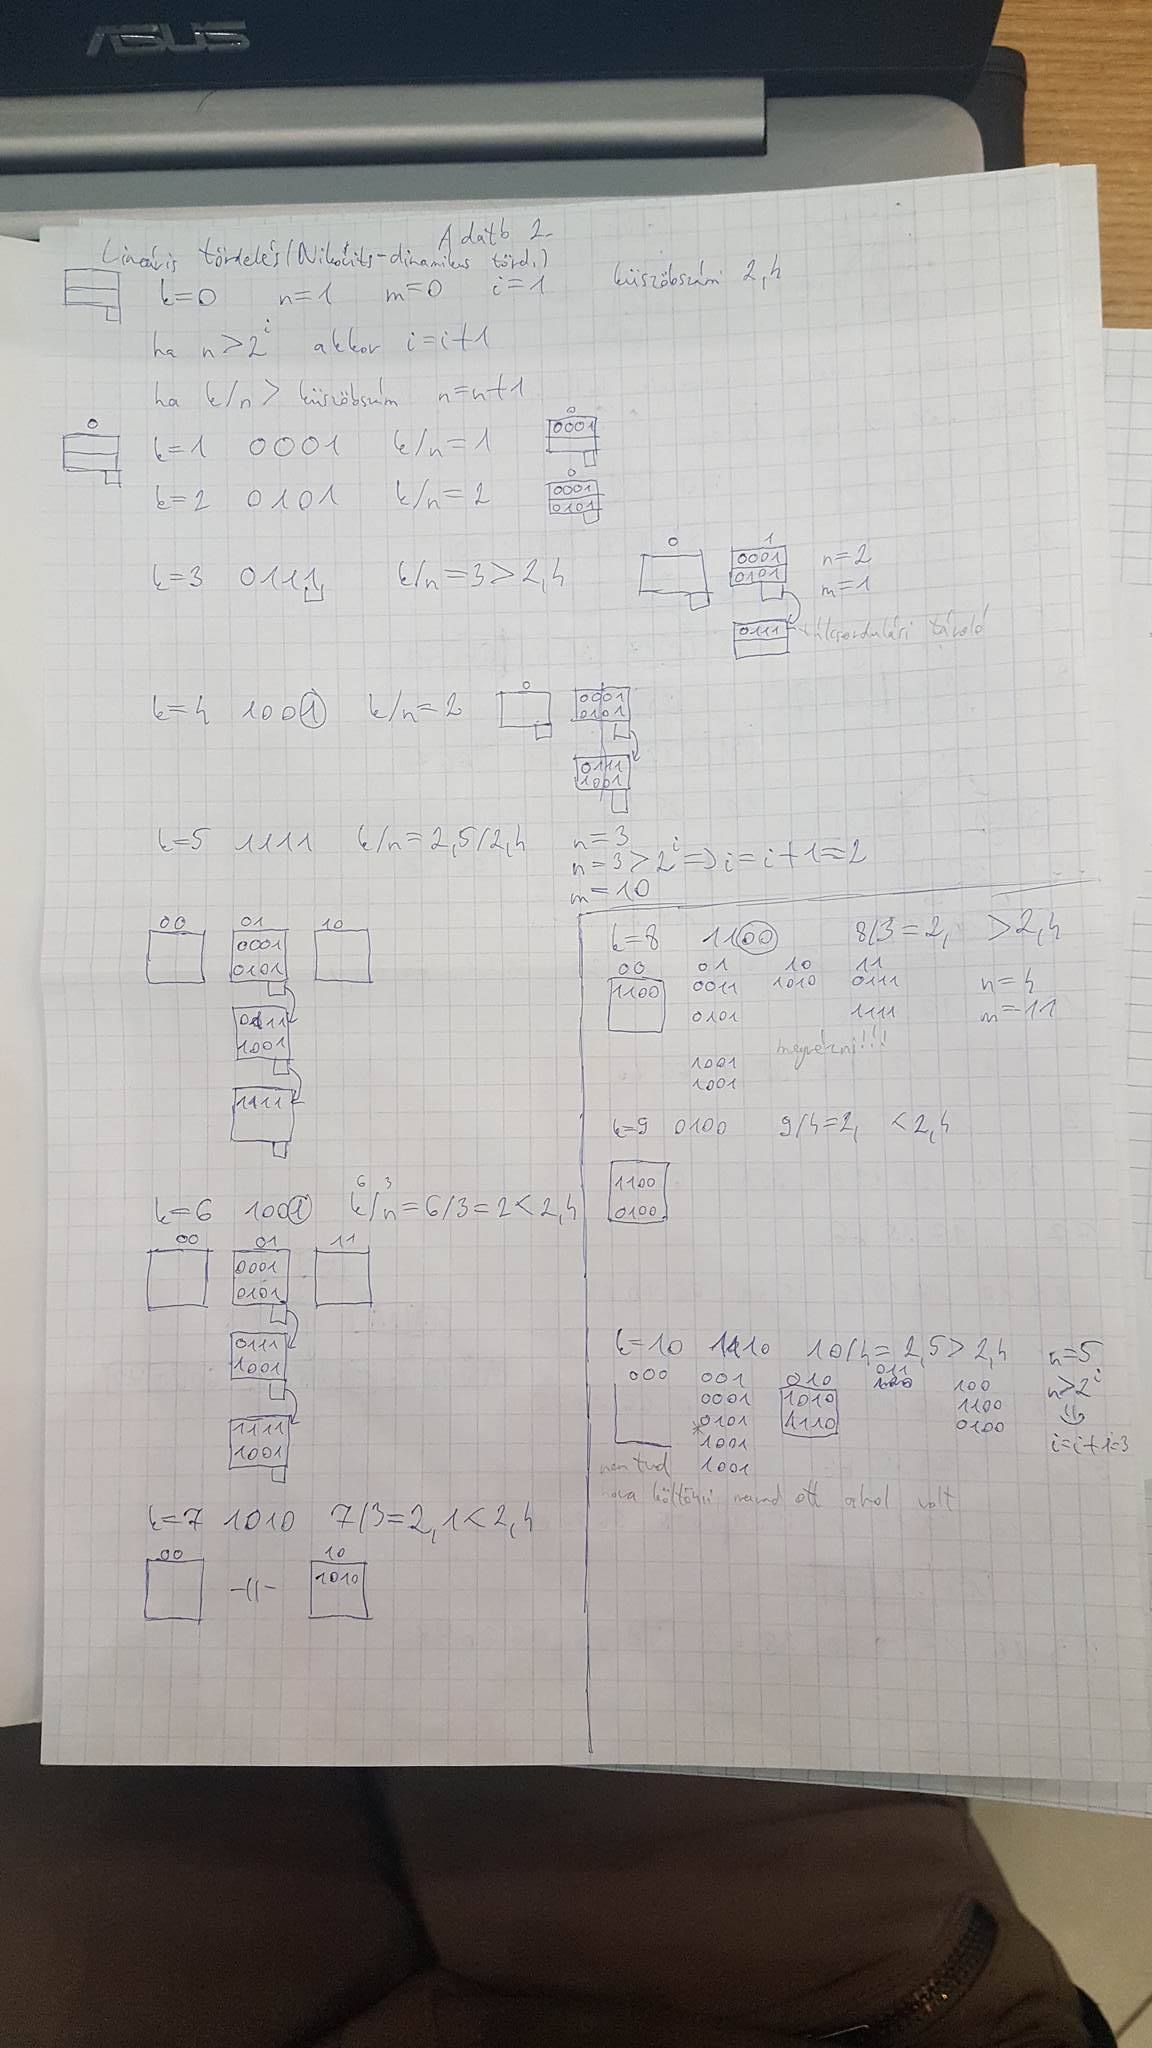 ASUS
Adatb 2.
Lineáris tördelés (Nikovits-dinamikus törd.)
k=0 n=1 m=0 i=1 küszöbszám 2,4
ha n>2^i akkor i=i+1
ha k/n > küszöbszám n=n+1
0
k=1 0001 k/n=1
0
0001
k=2 0101 k/n=2
0
0001
0101
k=3 0111 k/n=3>2,4
0 1
0001
0101
n=2
m=1
0111 túlcsordulási tároló
k=4 1001 k/n=2
0
0001
0101
0111
1001
k=5 1111 k/n=2,5/2,4
n=3
n=3>2^i => i=i+1=2
m=10
00 01 10
0001
0101
0111
1001
1111
k=6 1001 k/n=6/3=2<2,4
6 3
00 01 11
0001
0101
0111
1001
1111
1001
k=7 1010 7/3=2,1<2,4
00 10
-||- 1010
k=8 1100 8/3=2, >2,4
00 01 10 11
1100 0011 1010 0111 n=4
0101 1111 m=11
1001
1001
k=9 0100 9/4=2, <2,4
1100
0100
k=10 1110 10/4=2,5>2,4 n=5
000 001 010 011 100 n>2^i
0001 1010 1100
*0101 1110 0100
1001 i=i+1=3
nem tud 1001
hova költözni marad ott ahol volt